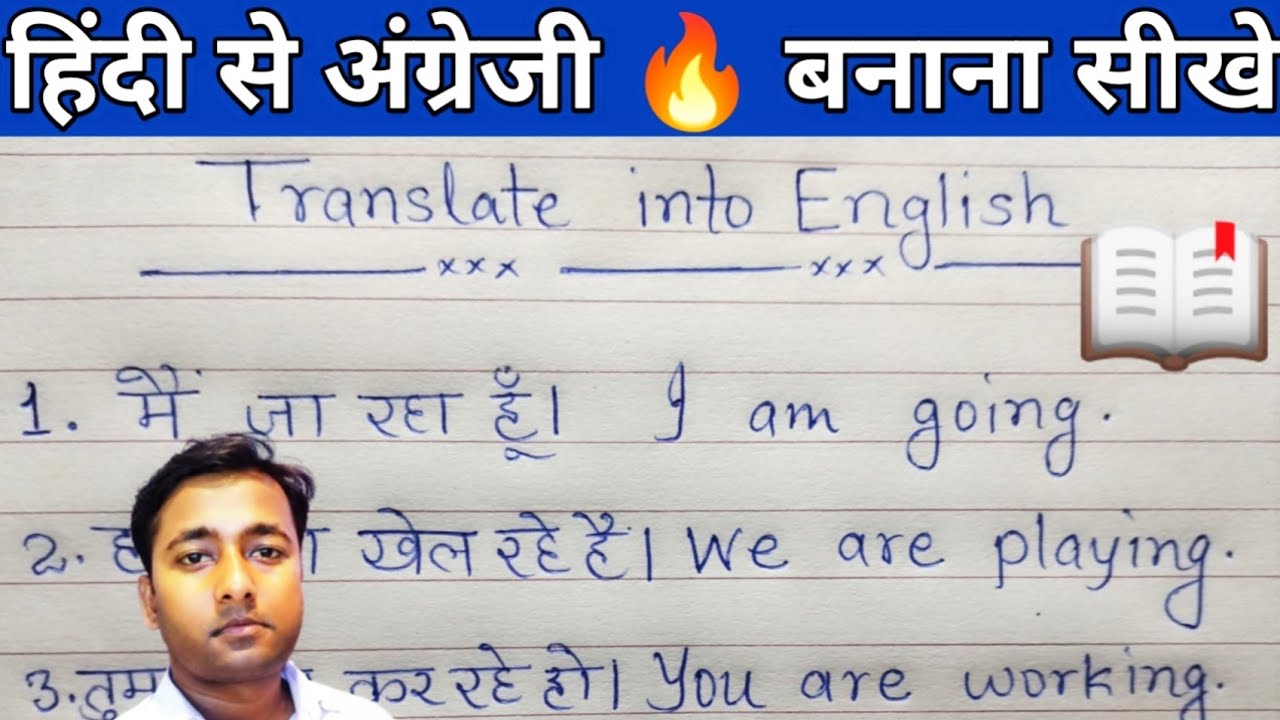 हिंदी से अंग्रेजी 🔥 बनाना सीखे
Translate into English
xxx xxx
1. मैं जा रहा हूँ। I am going.
2. खेल रहे हैं। We are playing.
3. तुम कर रहे हो। You are working.